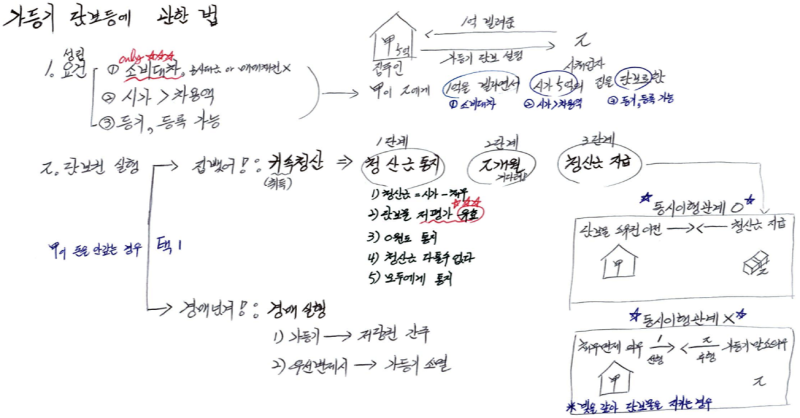 가등기 담보등에 관한 법
1억 빌려준
5억
집주인
가등기 담보 설정
乙
사채업자
1. 성립요건
only ☆☆☆
① 소비대차, 공사대금 or 매매대금 X
② 시가 > 차용액
③ 등기, 등록 가능
甲이 乙에게 1억을 빌리면서 시가 5억의 집을 담보로 한
① 소비대차 ② 시가>차용액 ③ 등기, 등록 가능
1단계 2단계 3단계
2. 담보권 실행
집뺏기!: 귀속청산 ⇒ 청산금 통지 2개월 청산금 지급
(취득)
1) 청산금 = 시가 - 채무
2) 담보물 저평가 - 유효
3) 0원도 통지
4) 청산금 다툴 수 없다
5) 모두에게 통지
甲이 돈을 안갚는 경우
택 1
경매넘겨!: 경매 실행
1) 가등기 → 저당권 간주
2) 우선변제서 → 가등기 소멸
☆동시이행관계 O☆
담보물 소유권 이전 → ← 청산금 지급
甲
乙
☆동시이행관계 X☆
채무변제 의무 1 선행 2 후행 가등기 말소의무
甲
乙
※ 빚을 갚아 담보물을 지키는 경우